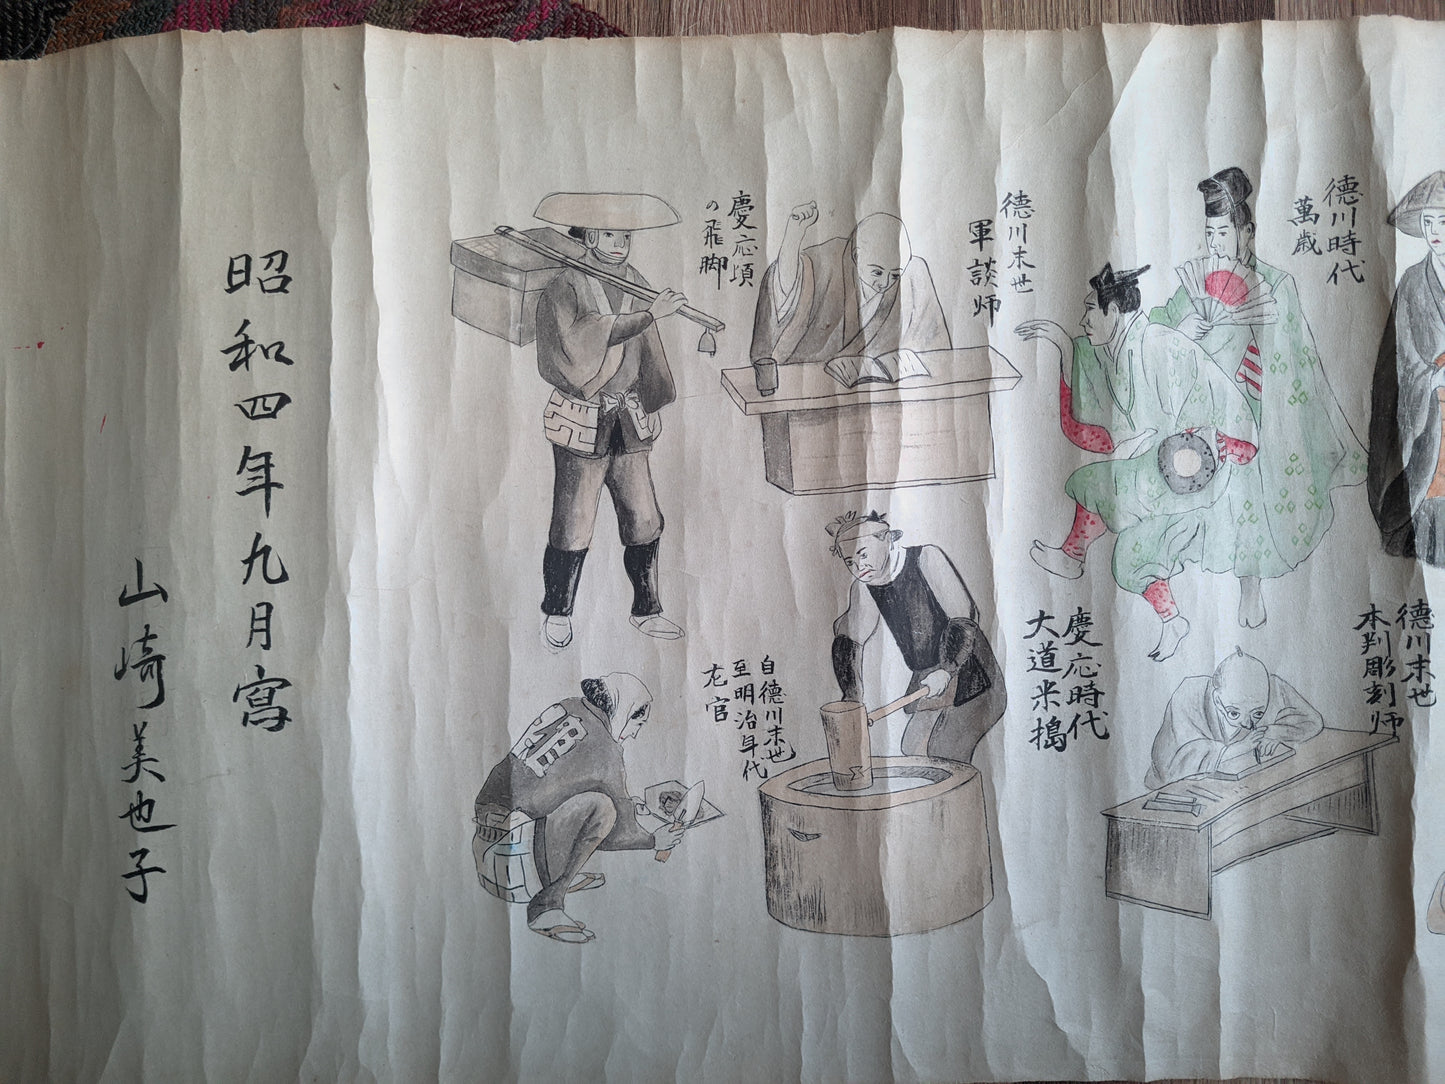 徳川時代
萬歳
徳川末世
木判彫刻师
徳川末世
軍談师
慶応時代
大道米搗
慶応頃
の飛脚
自徳川末世
至明治年代
左官
昭和四年九月寫
山崎美也子